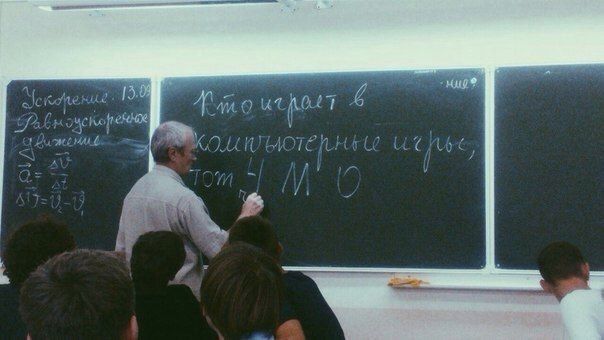 Ускорение. 13.09
Равноускоренное
движение
a = Δv / Δt
Δv = v₂ - v₁
Кто играет в
компьютерные игры,
тот Ч М О